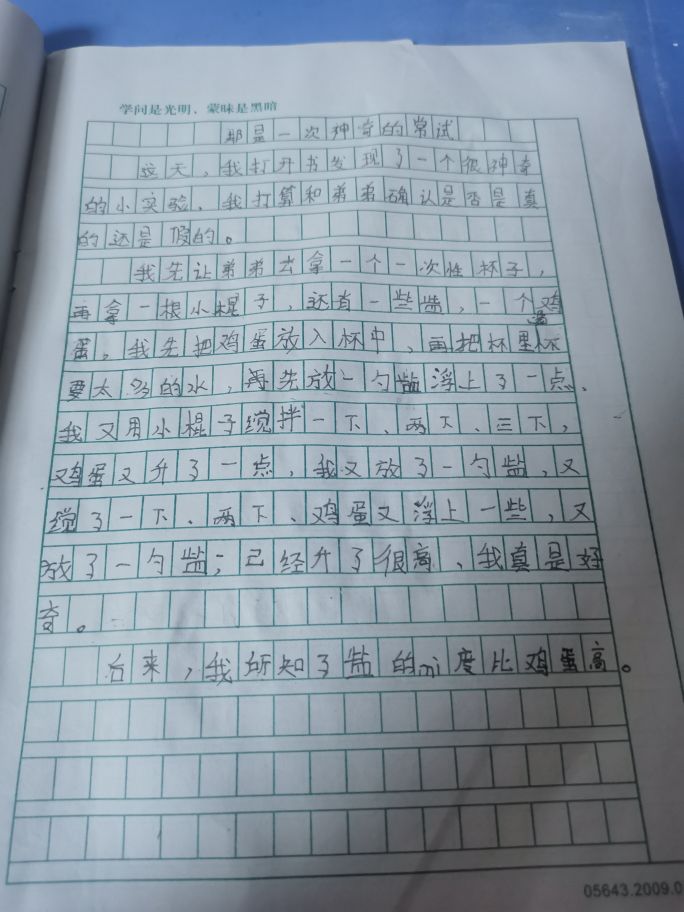 学问是光明、蒙昧是黑暗
那是一次神奇的常试
这天，我打开书发现了一个很神奇
的小实验，我打算和弟弟确认是否是真
的还是假的。
我先让弟弟去拿一个一次性杯子，
再拿一根小棍子，还有一些盐，一个鸡
蛋。我先把鸡蛋放入杯中，再把杯里
要太多的水，再先放一勺盐浮上了一点、
我又用小棍子搅拌一下、两下、三下，
鸡蛋又升了一点，我又放了一勺盐，又
搅了一下、两下、鸡蛋又浮上一些，又
放了一勺盐；已经升了很高、我真是好
奇。
后来，我所知了盐的mi度比鸡蛋高。
05643.2009.0